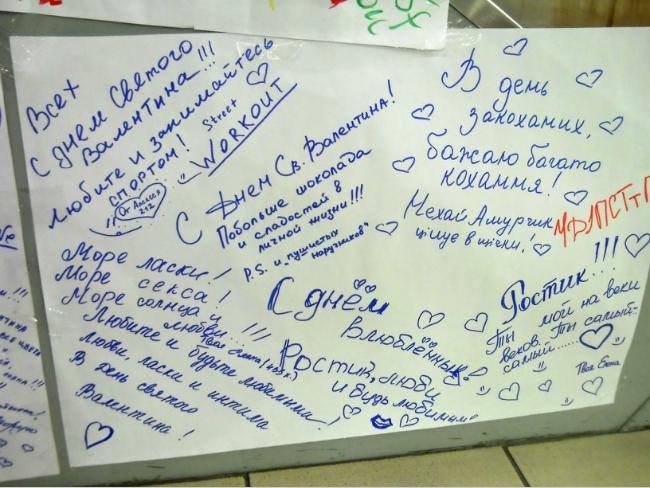 Всех
с днем святого
Валентина!!!
Любите и занимайтесь
спортом!
Street
WORKOUT
От Алексея
212
С Днем Св. Валентина!
Побольше шоколада
и сладостей в
личной жизни!!!
P.S. и "пушистых
наручников"
В день
закоханих,
бажаю багато
кохання!
Нехай Амурчик
цілує в щічки!
Море ласки!
Море секса!
Море солнца и
любви... !!!
Любите и будьте любимыми!
Любви, ласки и интима
В день святого
Валентина!
С днём
Влюблённых!
Ростик, люби
и будь любимым
Ростик... !!!
Ты мой на веки
веков. Ты самый-
самый.....
Твоя Елена